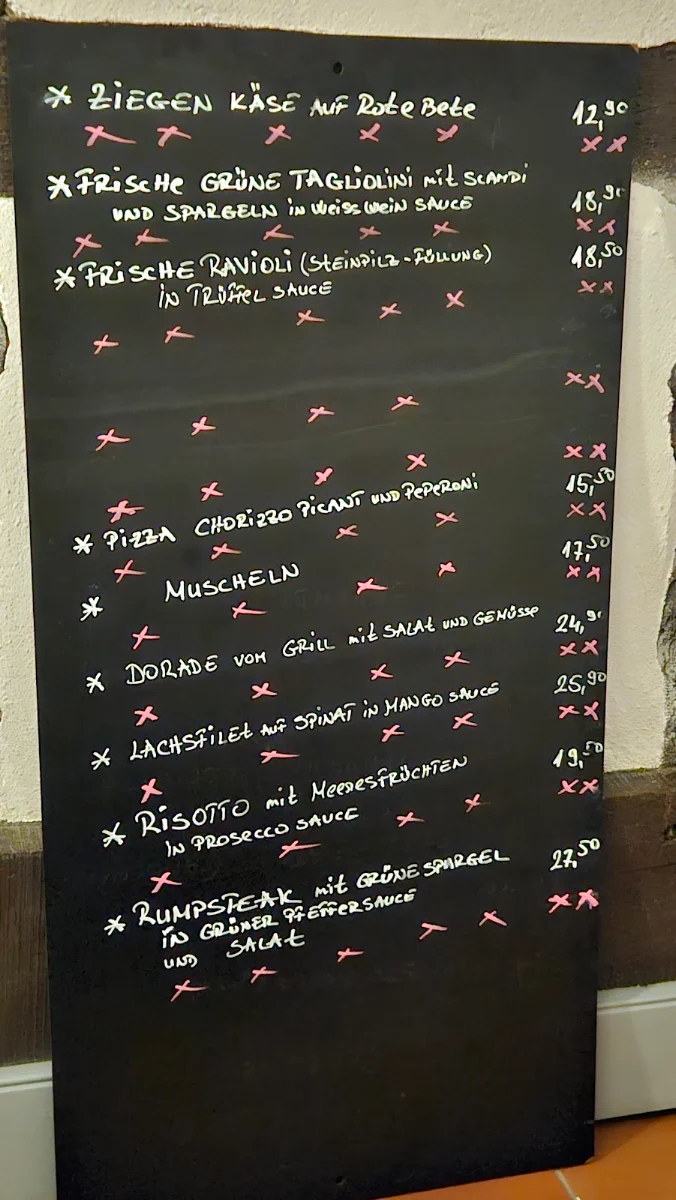 * ZiEGEN KÄSE AUF Rote Bete 12,90
* FRiScHe GRÜNE TAGLIOLINI mit SCAMPi 18,90
UND SPARGELN in Weiss Wein SAUCE
* FRISCHE RAVIOLI (STEINPILZ-FÜLLUNG) 18,50
iN TRÜFFEL SAUCE
* PiZZA CHORIZZO PiCANT UND PePeRoni 15,50
* MUSCHELN 17,50
* DORADE VOM GRILL mit SALAt UND GEMÜSSe 24,90
* LACHSFiLEt AUF SPiNAT iN MANGO SAUCE 25,90
* RiSOTTO mit MeeResFRÜCHTEN 19,50
iN PROSECCO SAUCE
* RUMPSTEAK mit GRÜNE SPARGEL 27,50
iN GRÜNER PFEFFERSAUCE
UND SALAt